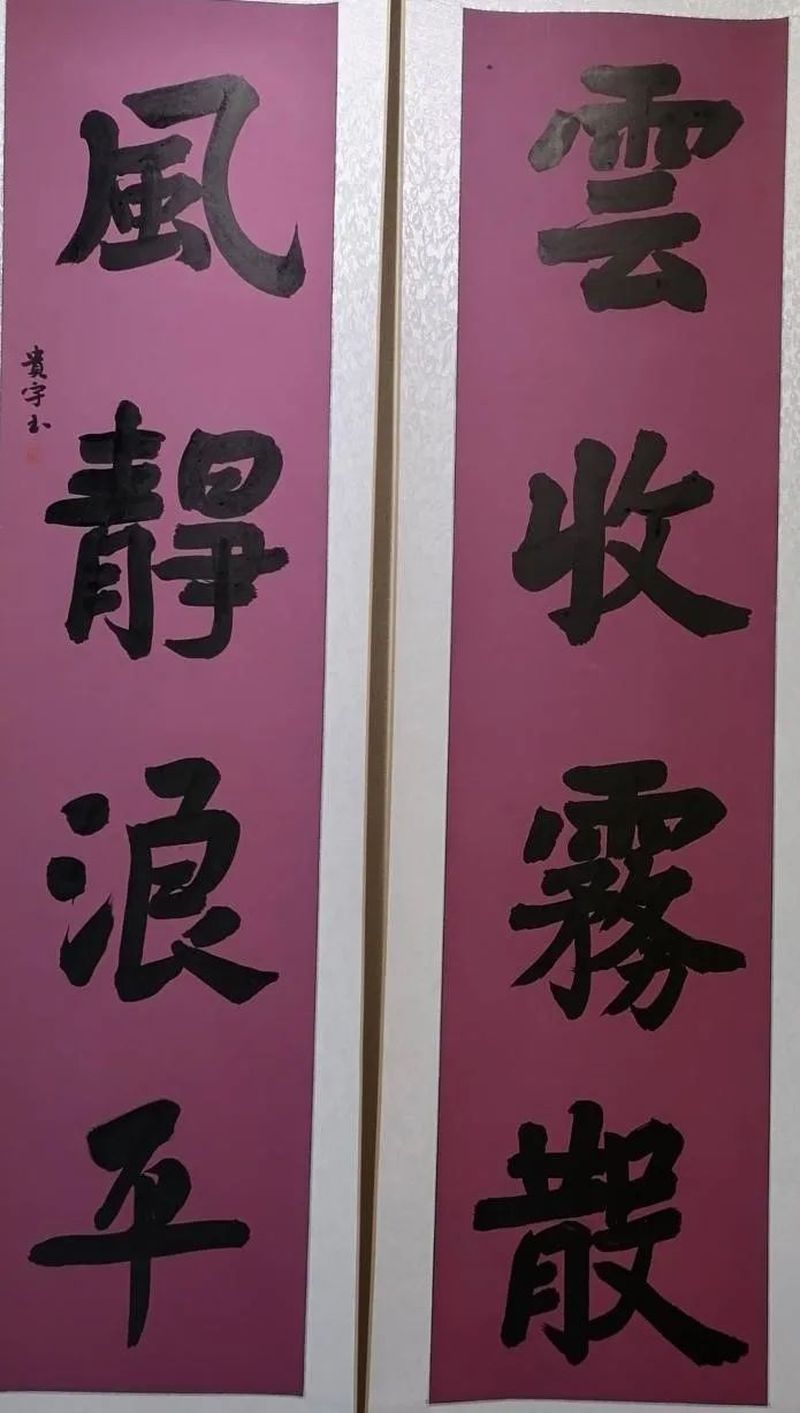 雲收霧散
風靜浪平
貴宇玉